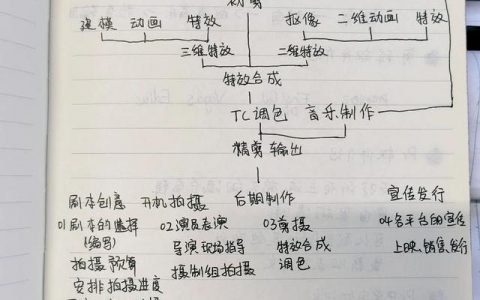 初剪
建模 动画 特效 抠像 二维动画 特效
三维特效 二维特效
特效合成
TC调色 音乐制作
精剪输出
剧本创意 开机拍摄 后期制作 宣传发行
01剧本的选择 02演员表演 03剪摄 04各平台的宣传
(编写) 导演现场指导 特效合成 上映、销售、发行
拍摄预算 摄制组拍摄 调色
安排拍摄进度